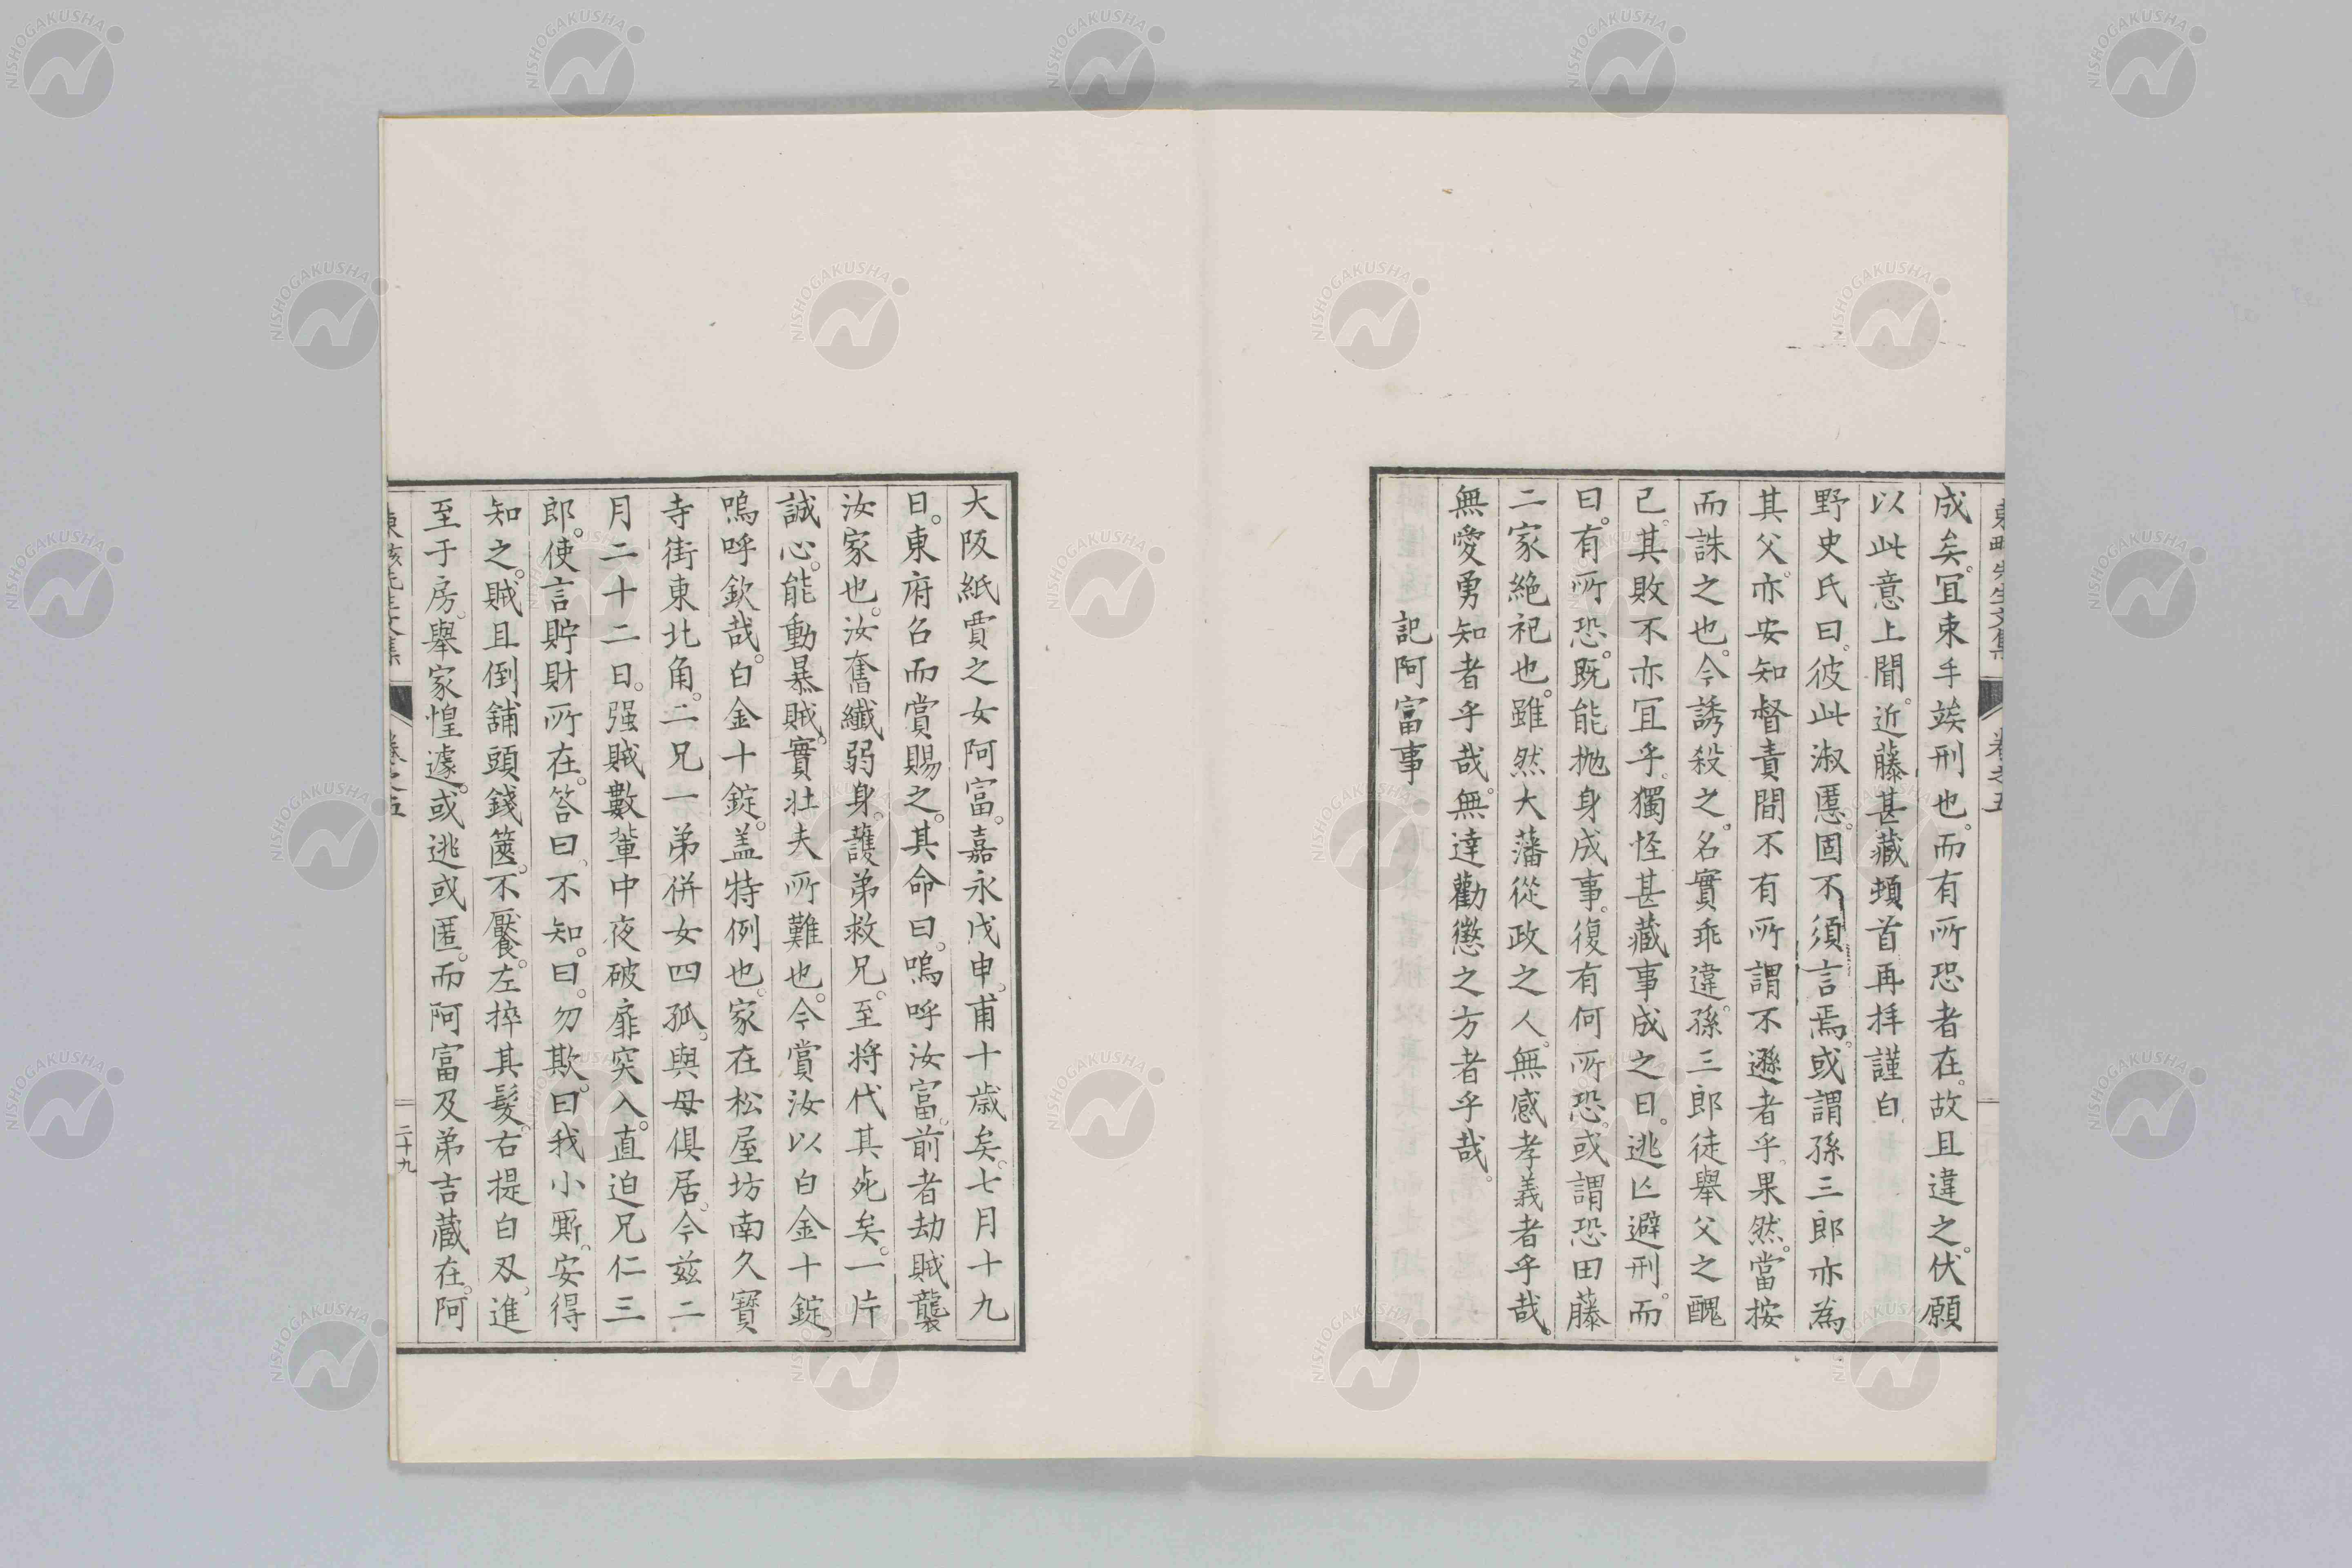 東畡先生文集
卷之五
成矣。冝束手竢刑也。而有所恐者在。故且違之。伏願
以此意上聞。近藤甚藏頓首再拜謹白
野史氏曰。彼此淑慝。固不須言焉。或謂孫三郎亦為
其父。亦安知督責間不有所謂不遜者乎。果然。當按
而誅之也。今誘殺之。名實乖違。孫三郎徒舉父之醜
已。其敗不亦冝乎。獨怪甚藏事成之日。逃亾避刑。而
曰。有所恐。既能抛身成事。復有何所恐。或謂恐田藤
二家絕祀也。雖然大藩從政之人。無感孝義者乎哉。
無愛勇知者乎哉。無達勸懲之方者乎哉。
記阿富事
大阪紙賈之女阿富。嘉永戊申。甫十歲矣。七月十九
日。東府召而賞賜之。其命曰。嗚呼汝富。前者劫賊襲
汝家也。汝奮纖弱身。護弟救兄。至將代其死矣。一片
誠心。能動暴賊。實壯夫所難也。今賞汝以白金十錠。
嗚呼欽哉。白金十錠。盖特例也。家在松屋坊南久寶
寺街東北角。二兄一弟併女四孤。與母俱居。今茲二
月二十二日。强賊數軰中夜破扉突入。直迫兄仁三
郎。使言貯財所在。答曰。不知。曰。勿欺。曰。我小厮。安得
知之。賊且倒舖頭錢篋。不饜。左捽其髮。右提白刄。進
至于房。舉家惶遽。或逃或匿。而阿富及弟吉藏在。阿
東畡先生文集
卷之五
二十九